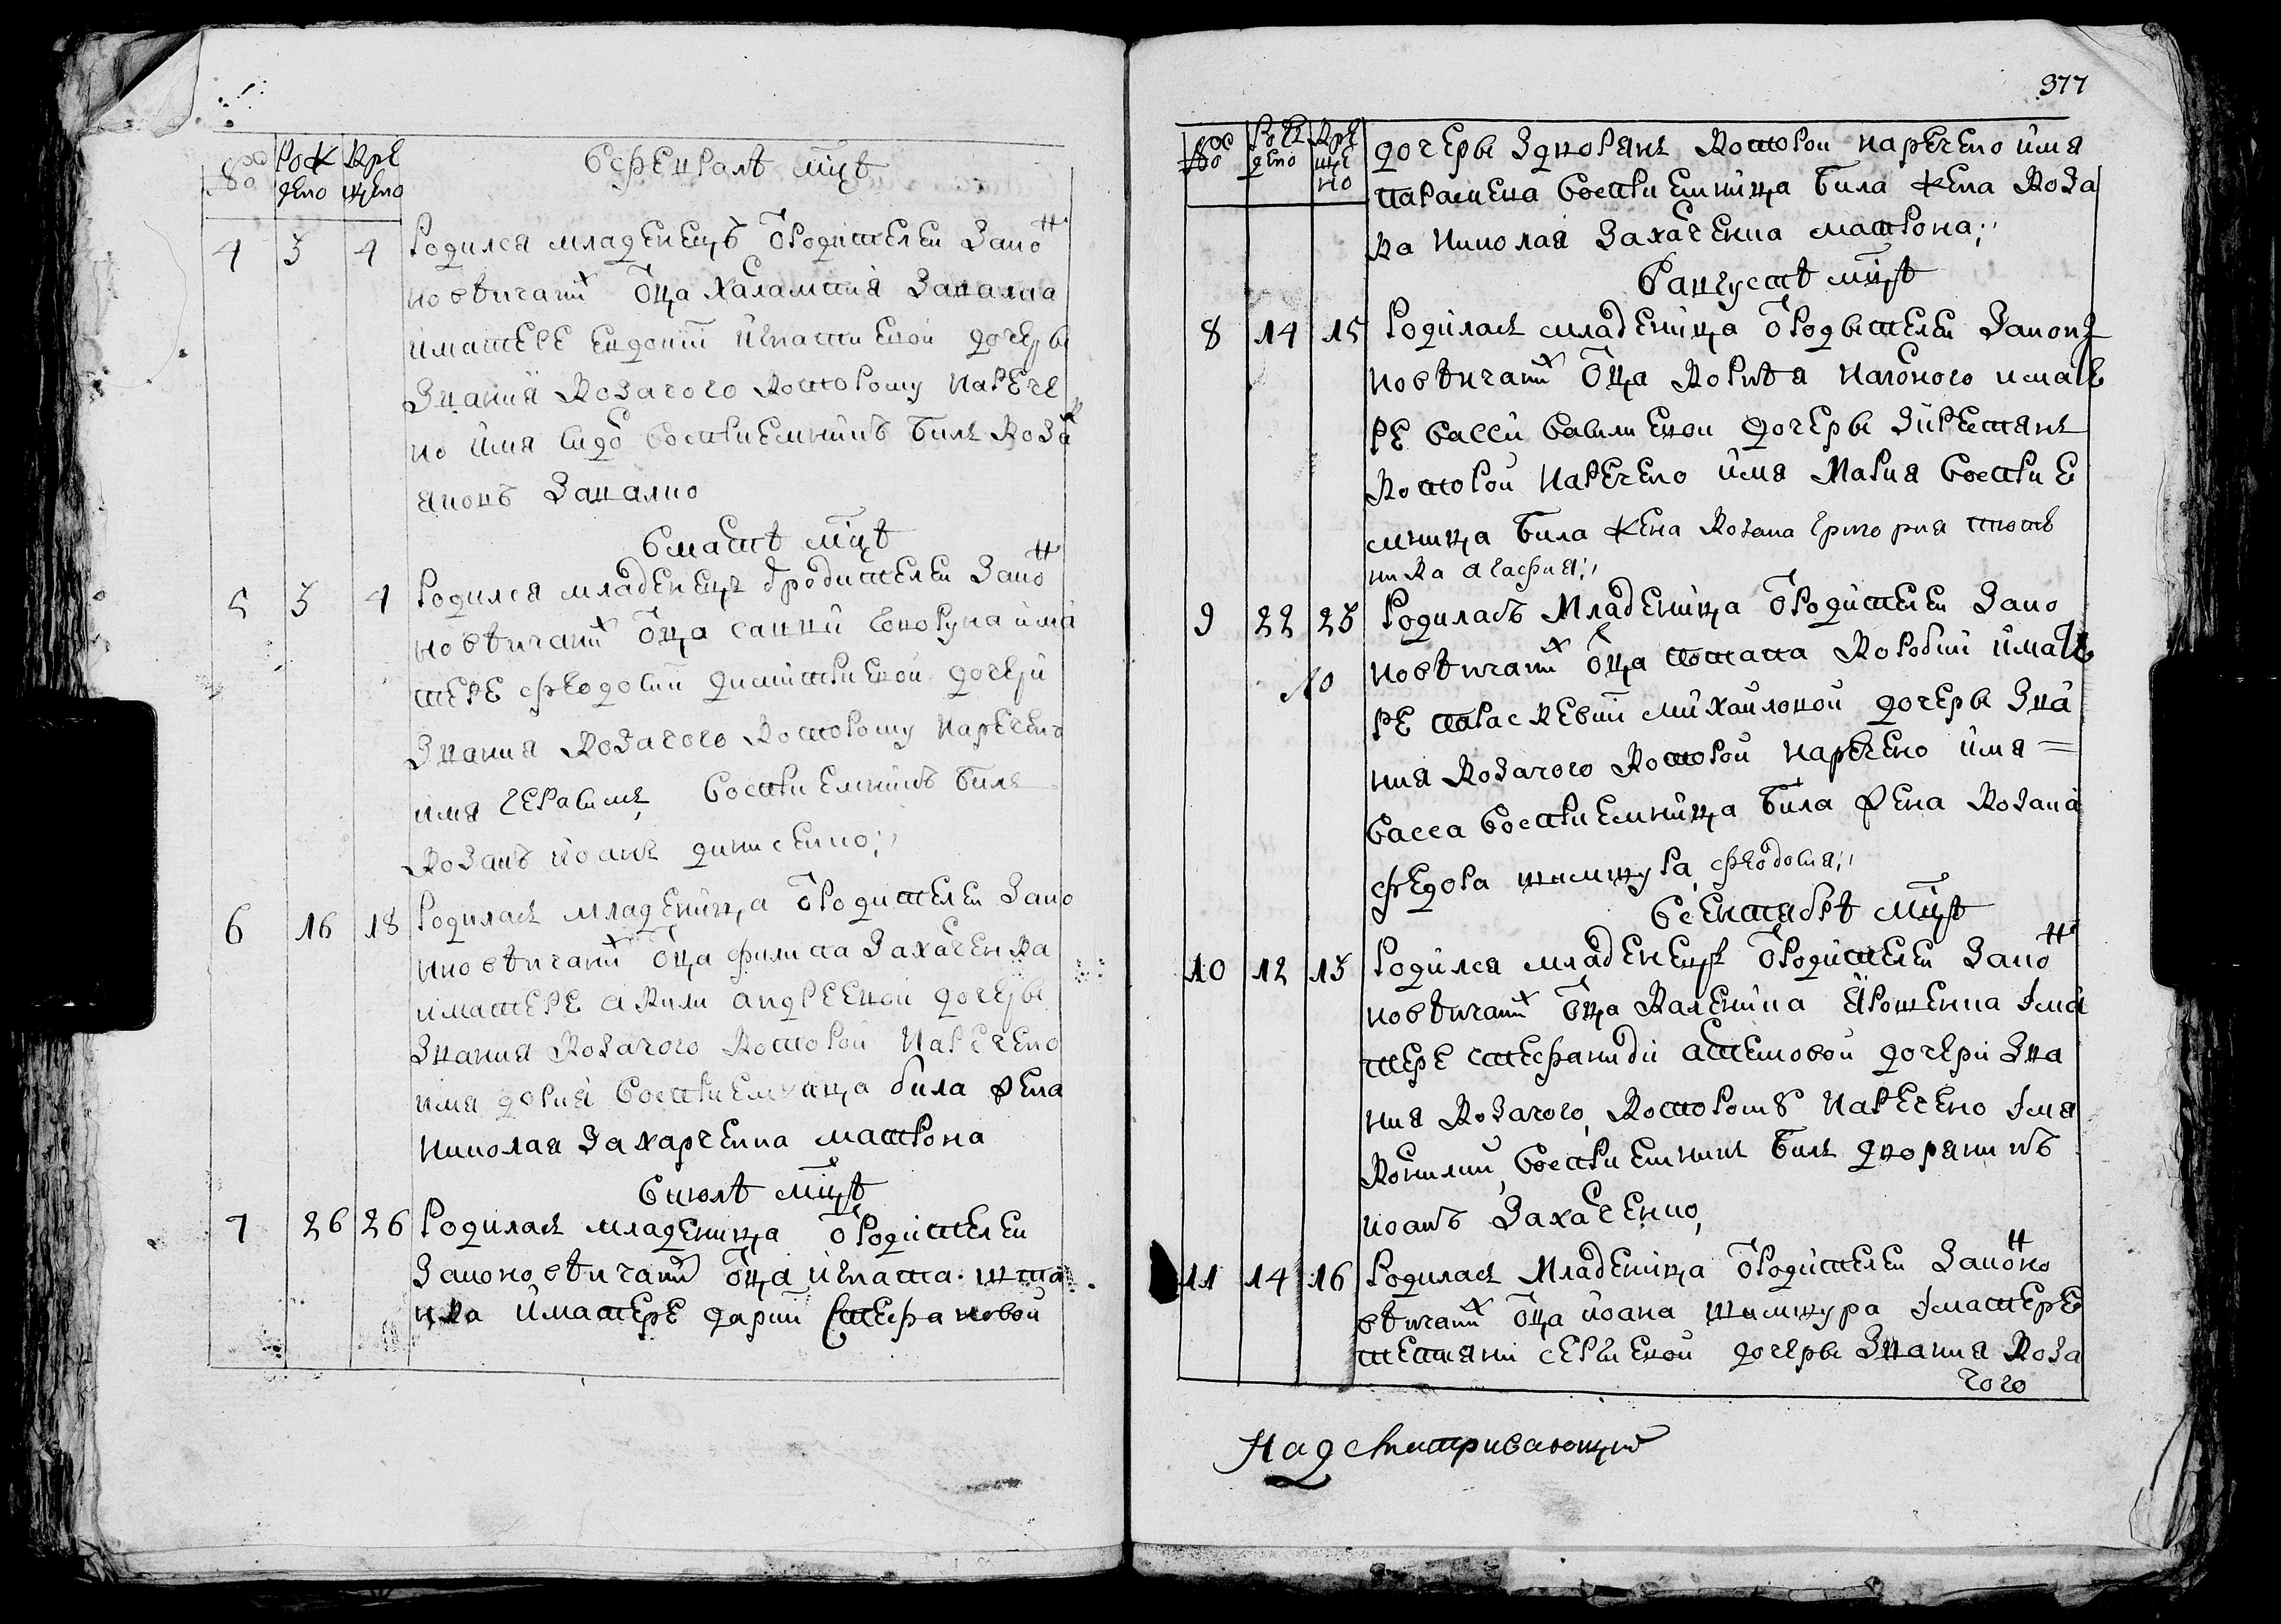 Рож
дено
Кре
щено
В февралѣ мцѣ
4 3 4 Родился младенецъ ѿ родителей Закон
новѣнчаних ѿца Халампия Запална
и матере Евдокии Игнатиевой дочеры
Звания козачого которому нарече
но имя Сидор восприемникъ билъ коза
Запално
В мартѣ мцѣ
5 3 4 Родился младенецъ ѿ родителей Закон
новѣнчаних ѿца Сковруна и ма
тере Феодосии Димитриевой дочери
Звания козачого которому наречено
имя Герасимъ, восприемникъ билъ
козакъ Иоанъ Денисенко
6 16 18 Родилась младеница ѿ родителей Зако
нновѣнчаних ѿца Филиппа Захарченка
и матере Акили Андреевой дочеры
Звания козачого которой наречено
имя Дория восприемница била жена
Николая Захарченка Матрона
В июлѣ мцѣ
7 26 26 Родилась младеница ѿ родителей
Законовѣнчаних ѿца Игната
и матере Дарии Стефановой
377
Рож
дено
Кре
ще
но
дочеры Здворянъ которой наречено имя
Параскева восприемница била жена коза
ка Николая Захарченка Матрона
В августѣ мцѣ
8 14 15 Родилась младеница ѿ родытелей Закон
новѣнчаних ѿца Нагорного и мате
ре Вассы Василиевой дочеры
которой наречено имя Мария восприе
мница била жена козака Григория Плот
ника Агафия
9 22 23 Родилась младеница ѿ родителей Зако
новѣнчаних ѿца Потапа Коробки и мате
№
ре Параскевии Михайловой дочеры Зва
ния козачого которой наречено имя
Васса восприемница била жена козака
Федора Шимшура, Феодосия
В сентябрѣ мцѣ
10 12 13 Родился младенецъ ѿ родителей Закон
новѣнчаних ѿца Каленика Ярошенка и ма
тере Стефанидии Артемовой дочери Зва
ния козачого, которому наречено имя
Корнилий, восприемникъ билъ дворянинъ
Иоанъ Захарченко,
11 14 16 Родилась младеница ѿ родителей Законно
вѣнчаних ѿца Иоана Шимшура и матере
Тетяни Сергиевой дочеры Звания коза
чого
Надсматривающий